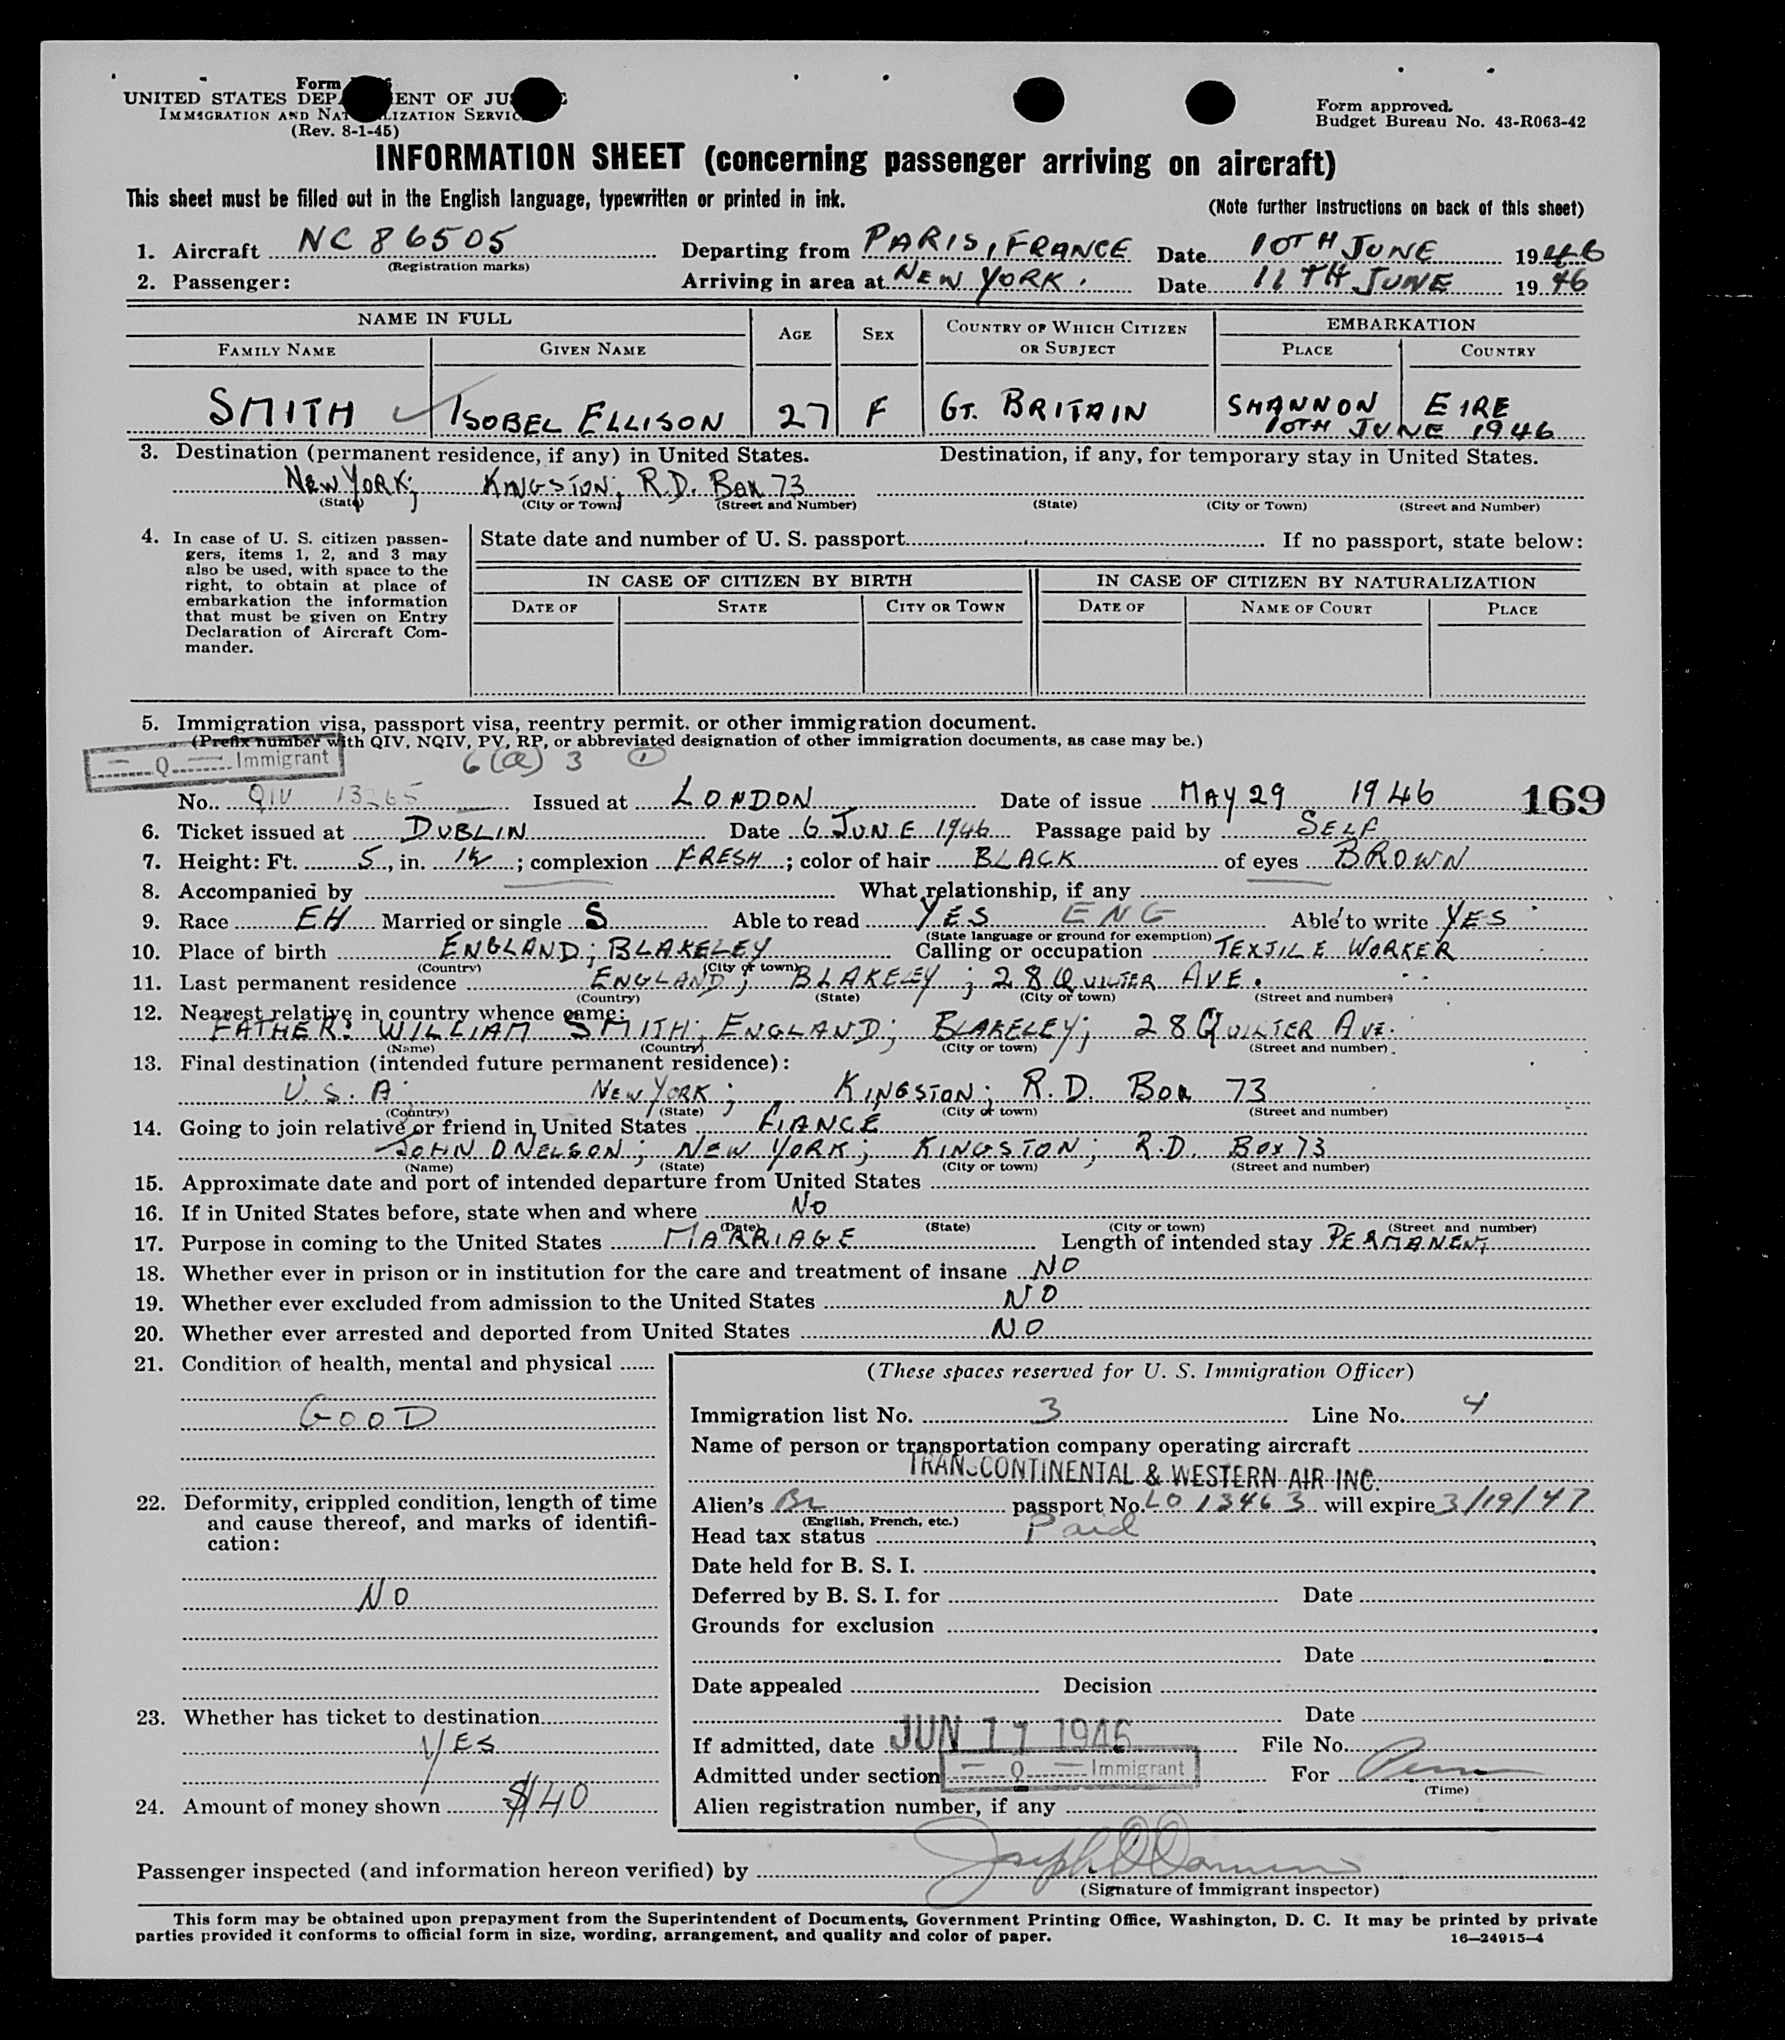 Form
UNITED STATES DEP ENT OF JUS
IMMIGRATION AND NAT LIZATION SERVIC
(Rev. 8-1-45)
Form approved.
Budget Bureau No. 43-R063-42
INFORMATION SHEET (concerning passenger arriving on aircraft)
This sheet must be filled out in the English language, typewritten or printed in ink.
(Note further instructions on back of this sheet)
1. Aircraft NC 86505 Departing from PARIS, FRANCE Date 10TH JUNE 1946
(Registration marks)
2. Passenger: Arriving in area at NEW YORK. Date 11TH JUNE 1946
NAME IN FULL AGE SEX COUNTRY OF WHICH CITIZEN OR SUBJECT EMBARKATION
FAMILY NAME GIVEN NAME PLACE COUNTRY
SMITH ISOBEL ELLISON 27 F GT. BRITAIN SHANNON EIRE
10TH JUNE 1946
3. Destination (permanent residence, if any) in United States. Destination, if any, for temporary stay in United States.
NEW YORK; KINGSTON; R.D. BOX 73
(State) (City or Town) (Street and Number) (State) (City or Town) (Street and Number)
4. In case of U. S. citizen passen-
gers, items 1, 2, and 3 may
also be used, with space to the
right, to obtain at place of
embarkation the information
that must be given on Entry
Declaration of Aircraft Com-
mander.
State date and number of U. S. passport If no passport, state below:
IN CASE OF CITIZEN BY BIRTH IN CASE OF CITIZEN BY NATURALIZATION
DATE OF STATE CITY OR TOWN DATE OF NAME OF COURT PLACE
5. Immigration visa, passport visa, reentry permit, or other immigration document.
(Prefix number with QIV, NQIV, PV, RP, or abbreviated designation of other immigration documents, as case may be.)
Q Immigrant 6 (a) 3 1
No. QIV 13265 Issued at LONDON Date of issue MAY 29 1946 169
6. Ticket issued at DUBLIN Date 6 JUNE 1946 Passage paid by SELF
7. Height: Ft. 5, in. 1½; complexion FRESH; color of hair BLACK of eyes BROWN
8. Accompanied by What relationship, if any
9. Race EH Married or single S Able to read YES ENG Able to write YES
(State language or ground for exemption)
10. Place of birth ENGLAND; BLAKELEY Calling or occupation TEXTILE WORKER
(Country) (City or town)
11. Last permanent residence ENGLAND; BLAKELEY; 28 QUILTER AVE.
(Country) (State) (City or town) (Street and number)
12. Nearest relative in country whence came:
FATHER: WILLIAM SMITH; ENGLAND; BLAKELEY; 28 QUILTER AVE.
(Name) (Country) (City or town) (Street and number)
13. Final destination (intended future permanent residence):
U.S.A. NEW YORK; KINGSTON; R.D. BOX 73
(Country) (State) (City or town) (Street and number)
14. Going to join relative or friend in United States FIANCE
JOHN D NELSON; NEW YORK; KINGSTON; R.D. BOX 73
(Name) (State) (City or town) (Street and number)
15. Approximate date and port of intended departure from United States
16. If in United States before, state when and where NO
(Date) (State) (City or town) (Street and number)
17. Purpose in coming to the United States MARRIAGE Length of intended stay PERMANENT
18. Whether ever in prison or in institution for the care and treatment of insane NO
19. Whether ever excluded from admission to the United States NO
20. Whether ever arrested and deported from United States NO
21. Condition of health, mental and physical
GOOD
22. Deformity, crippled condition, length of time
and cause thereof, and marks of identifi-
cation:
NO
23. Whether has ticket to destination
YES
24. Amount of money shown $140
(These spaces reserved for U. S. Immigration Officer)
Immigration list No. 3 Line No. 4
Name of person or transportation company operating aircraft
TRANSCONTINENTAL & WESTERN AIR INC.
Alien's Br passport No. LO 13463 will expire 3/19/47
(English, French, etc.)
Head tax status Paid
Date held for B. S. I.
Deferred by B. S. I. for Date
Grounds for exclusion
Date
Date appealed Decision
Date
If admitted, date JUN 11 1946 File No.
Admitted under section Q Immigrant For Perm
(Time)
Alien registration number, if any
Passenger inspected (and information hereon verified) by
(Signature of immigrant inspector)
This form may be obtained upon prepayment from the Superintendent of Documents, Government Printing Office, Washington, D. C. It may be printed by private
parties provided it conforms to official form in size, wording, arrangement, and quality and color of paper.
16—24915-4